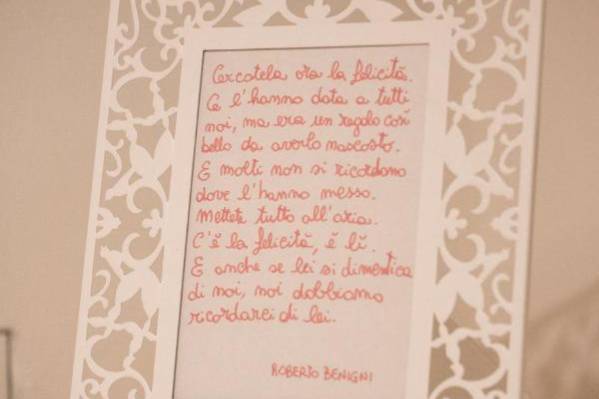 Cercatela ora la felicità.
Ce l'hanno data a tutti
noi, ma era un regalo così
bello da averlo nascosto.
E molti non si ricordano
dove l'hanno messo.
Mettete tutto all'aria.
C'è la felicità, è lì.
E anche se lei si dimentica
di noi, noi dobbiamo
ricordarci di lei.
ROBERTO BENIGNI